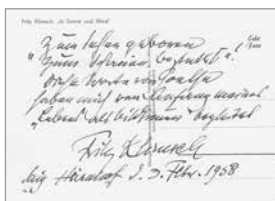 Fritz Klimsch: „In Sonne und Wind“
Zum Sehen geboren
"Zum Schauen bestellt".
diese Worte von Goethe
haben mich von Anfang meines
„Lebens“ als Bildhauer begleitet
Fritz Klimsch
Febr. 1958